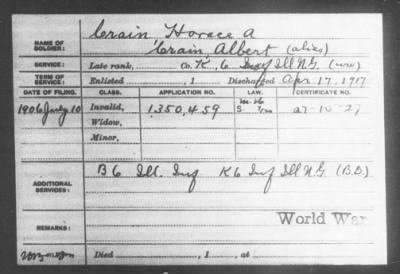 Crain Horace A
NAME OF SOLDIER: Crain, Albert (alias)
SERVICE: Late rank, Co. K, 6 Inf Ill N.G.
TERM OF SERVICE: Enlisted , 1 Discharged Apr 17, 1917
DATE OF FILING. CLASS. APPLICATION NO. LAW. CERTIFICATE NO.
1906 July 10 Invalid, 1,350,459
Widow,
Minor,
ADDITIONAL SERVICES: B 6 Ill. Inf K 6 Inf Ill N.G.
World War
REMARKS:
Died , 1 , at